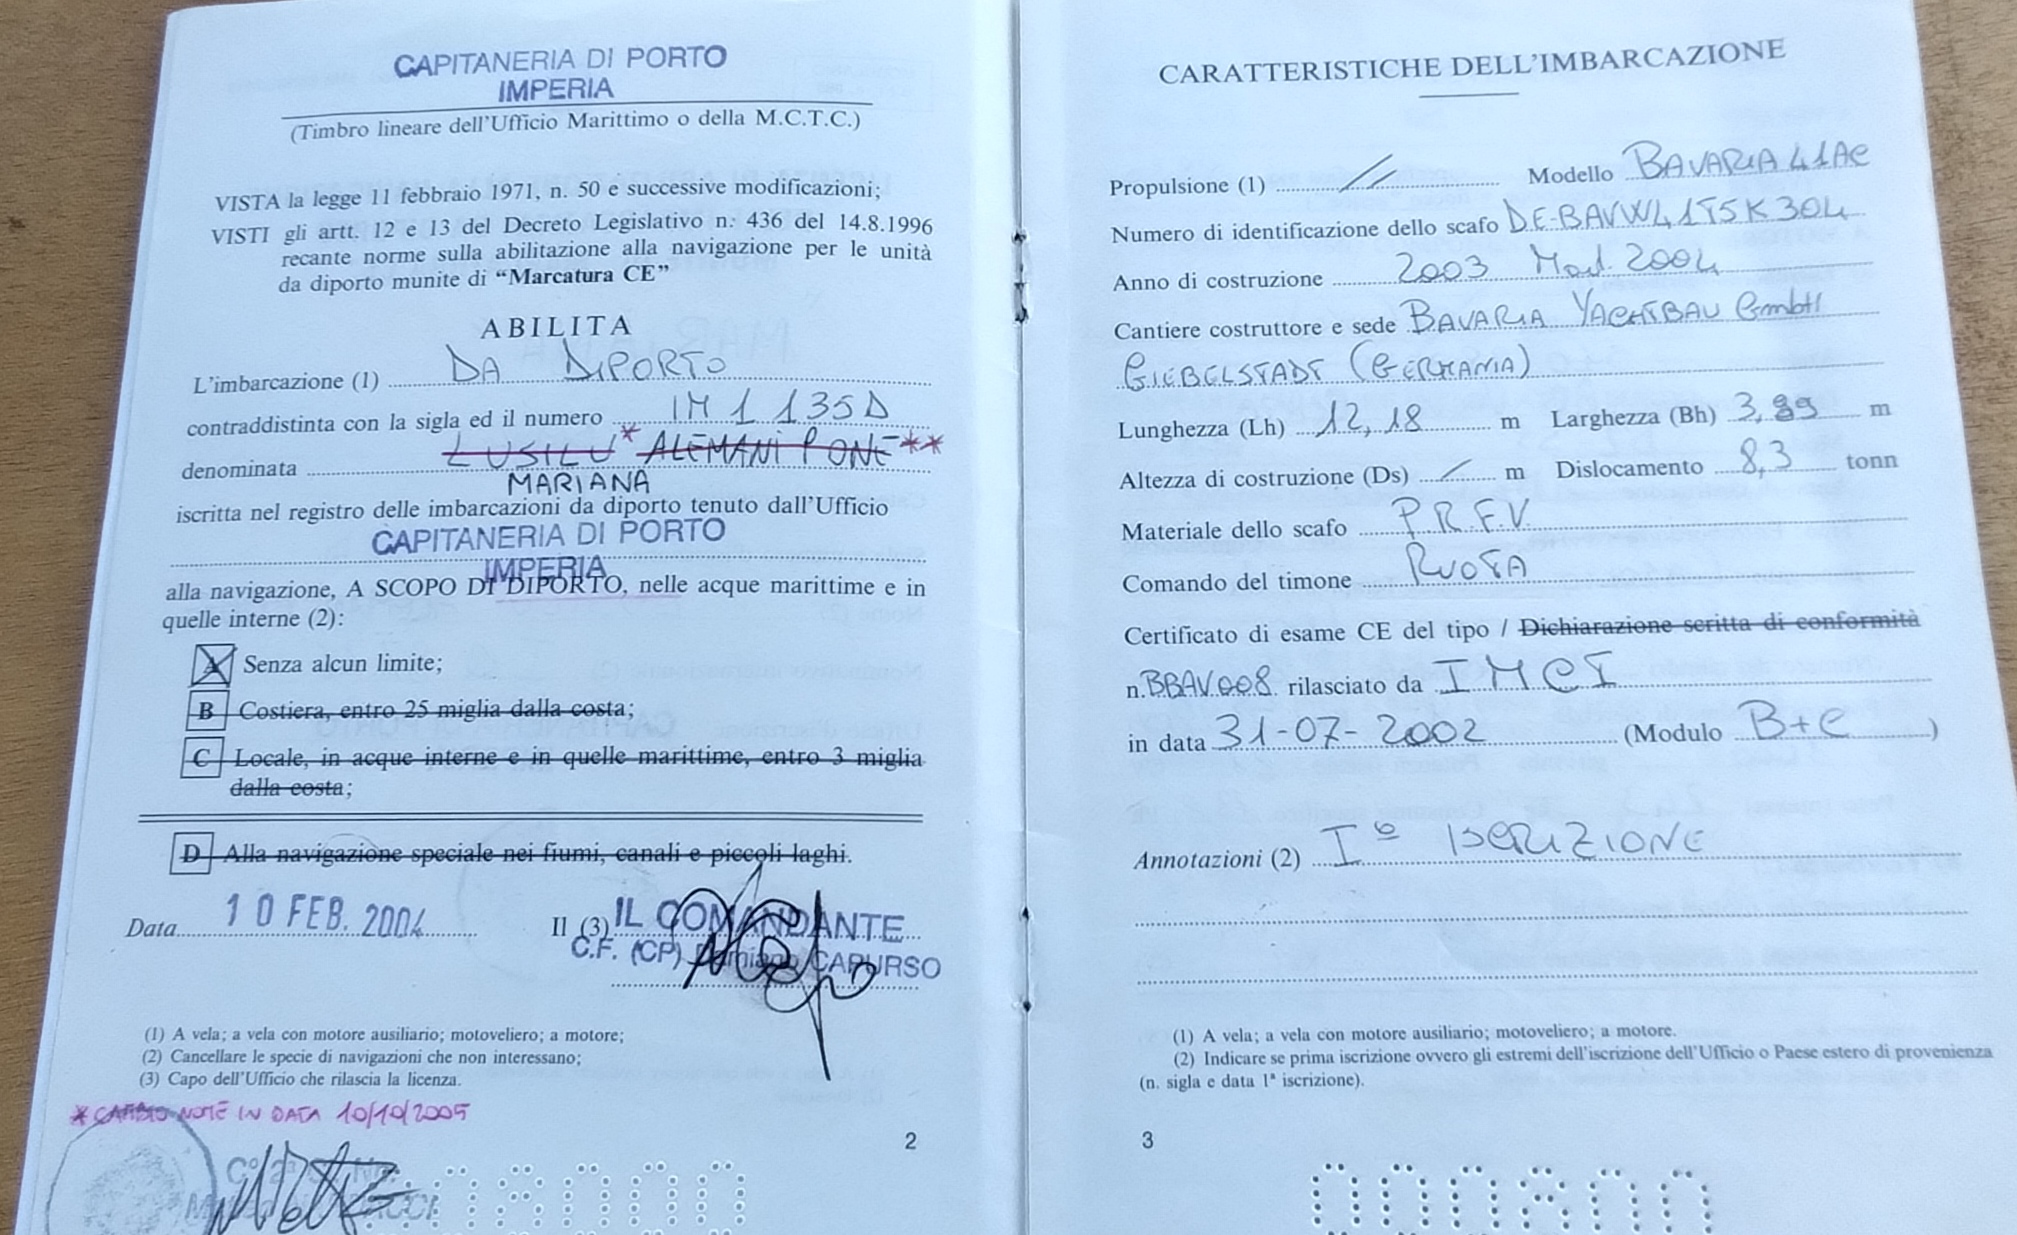 CAPITANERIA DI PORTO
IMPERIA
(Timbro lineare dell'Ufficio Marittimo o della M.C.T.C.)
VISTA la legge 11 febbraio 1971, n. 50 e successive modificazioni;
VISTI gli artt. 12 e 13 del Decreto Legislativo n. 436 del 14.8.1996
recante norme sulla abilitazione alla navigazione per le unità
da diporto munite di “Marcatura CE”
ABILITA
L'imbarcazione (1) DA DIPORTO
contraddistinta con la sigla ed il numero IM 1135D
denominata LUSILU* ALEMANI PONE**
MARIANA
iscritta nel registro delle imbarcazioni da diporto tenuto dall'Ufficio
CAPITANERIA DI PORTO
IMPERIA
alla navigazione, A SCOPO DI DIPORTO, nelle acque marittime e in
quelle interne (2):
A Senza alcun limite;
B Costiera, entro 25 miglia dalla costa;
C Locale, in acque interne e in quelle marittime, entro 3 miglia
dalla costa;
D Alla navigazione speciale nei fiumi, canali e piccoli laghi.
Data 10 FEB. 2004 Il (3) IL COMANDANTE
C.F. (CP) CAPURSO
(1) A vela; a vela con motore ausiliario; motoveliero; a motore;
(2) Cancellare le specie di navigazioni che non interessano;
(3) Capo dell'Ufficio che rilascia la licenza.
* CAMBIO NOME IN DATA 10/10/2005
2
CARATTERISTICHE DELL'IMBARCAZIONE
Propulsione (1) // Modello BAVARIA 41AC
Numero di identificazione dello scafo DE-BAVW41T5K304
Anno di costruzione 2003 Mod. 2004
Cantiere costruttore e sede BAVARIA YACHTBAU GmbH
GIEBELSTADT (GERMANIA)
Lunghezza (Lh) 12,18 m Larghezza (Bh) 3,99 m
Altezza di costruzione (Ds) / m Dislocamento 8,3 tonn
Materiale dello scafo P.R.F.V.
Comando del timone RUOTA
Certificato di esame CE del tipo / Dichiarazione scritta di conformità
n. BBAV008 rilasciato da IMCI
in data 31-07-2002 (Modulo B+C)
Annotazioni (2) I° ISCRIZIONE
(1) A vela; a vela con motore ausiliario; motoveliero; a motore.
(2) Indicare se prima iscrizione ovvero gli estremi dell'iscrizione dell'Ufficio o Paese estero di provenienza
(n. sigla e data 1ª iscrizione).
3